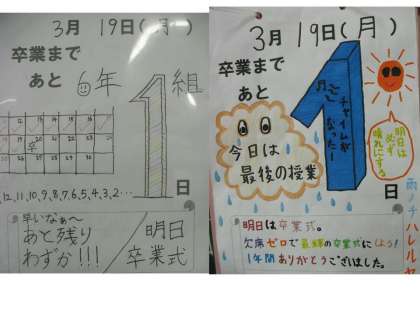 3月 19日(月)
卒業まで
あと 6年 1 組
日
12,11,10,9,8,7,6,5,4,3,2…
早いなぁ〜
あと残り
わずか!!!
明日
卒業式
3月 19日(月)
卒業まで
あと
1
日
チャイムが
なった!
今日は
最後の授業
明日は
必ず
晴れにする
雨ノチハレルヤ
明日は卒業式。
欠席ゼロで最高の卒業式にしよう!
1年間ありがとうございました。